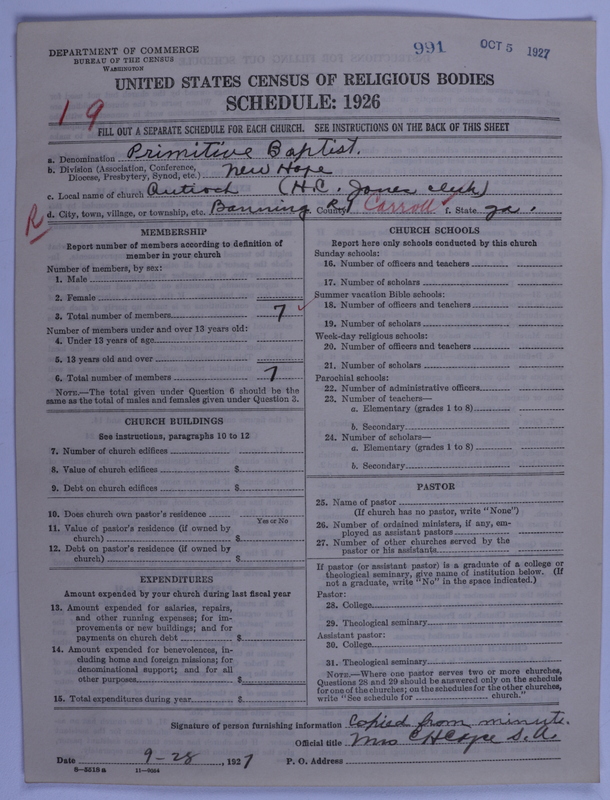 DEPARTMENT OF COMMERCE
BUREAU OF THE CENSUS
WASHINGTON
991 OCT 5 1927
UNITED STATES CENSUS OF RELIGIOUS BODIES
SCHEDULE: 1926
19
FILL OUT A SEPARATE SCHEDULE FOR EACH CHURCH. SEE INSTRUCTIONS ON THE BACK OF THIS SHEET
a. Denomination Primitive Baptist.
b. Division (Association, Conference, Diocese, Presbytery, Synod, etc.) New Hope
c. Local name of church Antioch (H.C. Jones clerk)
R d. City, town, village, or township, etc. Banning R1 e. County Carroll f. State Ga.
MEMBERSHIP
Report number of members according to definition of
member in your church
Number of members, by sex:
1. Male
2. Female
3. Total number of members 7 ✓
Number of members under and over 13 years old:
4. Under 13 years of age
5. 13 years old and over
6. Total number of members 7
NOTE.—The total given under Question 6 should be the
same as the total of males and females given under Question 3.
CHURCH BUILDINGS
See instructions, paragraphs 10 to 12
7. Number of church edifices
8. Value of church edifices $
9. Debt on church edifices $
10. Does church own pastor's residence
Yes or No
11. Value of pastor's residence (if owned by
church) $
12. Debt on pastor's residence (if owned by
church) $
EXPENDITURES
Amount expended by your church during last fiscal year
13. Amount expended for salaries, repairs,
and other running expenses; for im-
provements or new buildings; and for
payments on church debt $
14. Amount expended for benevolences, in-
cluding home and foreign missions; for
denominational support; and for all
other purposes $
15. Total expenditures during year $
CHURCH SCHOOLS
Report here only schools conducted by this church
Sunday schools:
16. Number of officers and teachers
17. Number of scholars
Summer vacation Bible schools:
18. Number of officers and teachers
19. Number of scholars
Week-day religious schools:
20. Number of officers and teachers
21. Number of scholars
Parochial schools:
22. Number of administrative officers
23. Number of teachers—
a. Elementary (grades 1 to 8)
b. Secondary
24. Number of scholars—
a. Elementary (grades 1 to 8)
b. Secondary
PASTOR
25. Name of pastor
(If church has no pastor, write "None")
26. Number of ordained ministers, if any, em-
ployed as assistant pastors
27. Number of other churches served by the
pastor or his assistants
If pastor (or assistant pastor) is a graduate of a college or
theological seminary, give name of institution below. (If
not a graduate, write "No" in the space indicated.)
Pastor:
28. College
29. Theological seminary
Assistant pastor:
30. College
31. Theological seminary
NOTE.—Where one pastor serves two or more churches,
Questions 28 and 29 should be answered only on the schedule
for one of the churches; on the schedules for the other churches,
write "See schedule for church."
Signature of person furnishing information Copied from minute.
Official title Mrs C H Cape S.A.
Date 9-28, 1927 P. O. Address
8-5518a 11-9264